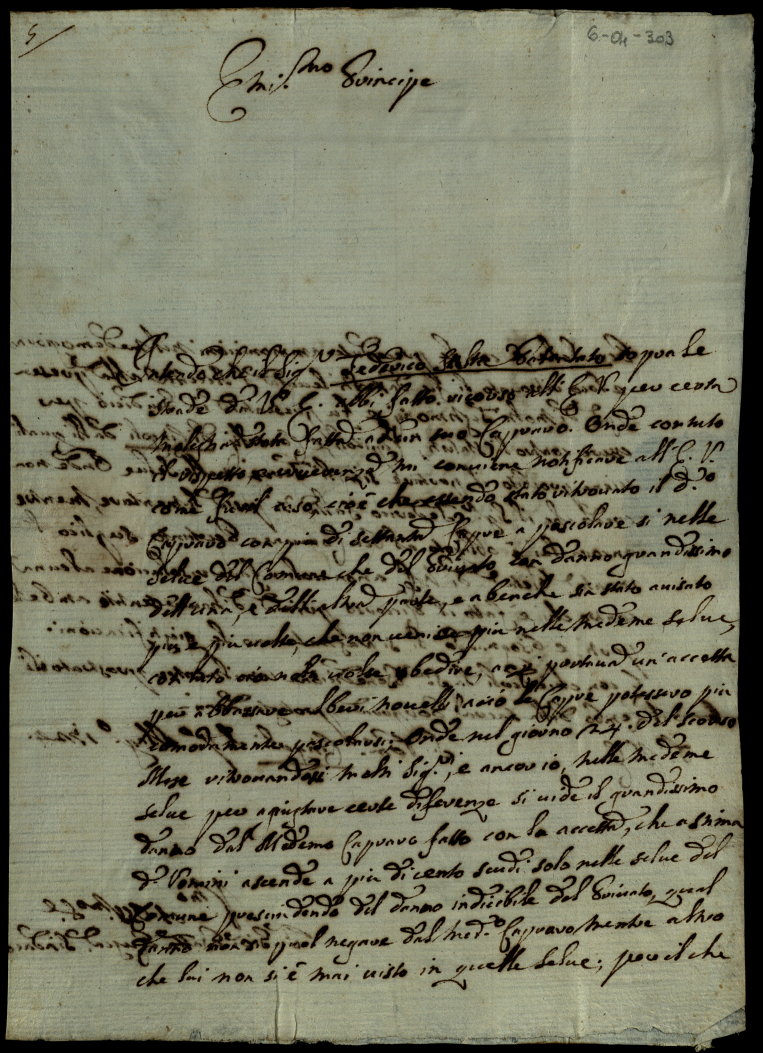 5
6-04-303
Emi.mo Principe
Intendo che il Sig.r Federico Potentato
strade da V. E. abbi fatto ricorso all' Em. V. per certa
fatta ad un suo Capraro. Onde con tuto
il rispetto mi conviene notificare all' E. V.
il caso, cioè che essendo stato ritrovato il d.o
Capraro con più di settanta Capre a pascolare si nelle
selve del Comune che del Privato con danno grandissimo
e dell' altra parte, e abenche sia stato avisato
più e più volte, che non venisse più nelle medeme selve,
non ha voluto obedire, anzi portava un' accetta
per abbassare alberi novelli, acciò le Capre potessero più
comodamente pascolarsi; Onde nel giorno 24. del scorso
Mese ritrovandosi molti Sig.ri, e ancor io, nelle medeme
selve per agiustare certe diferenze si vide il grandissimo
danno dal Medemo Capraro fatto con la accetta, che a stima
d' Uomini ascende a più di cento scudi solo nelle selve del
Comune prescindendo del danno indicibile del Privato, qual
danno non si puol negare dal med.o Capraro mentre altro
che lui non si è mai visto in quelle selve; però il che